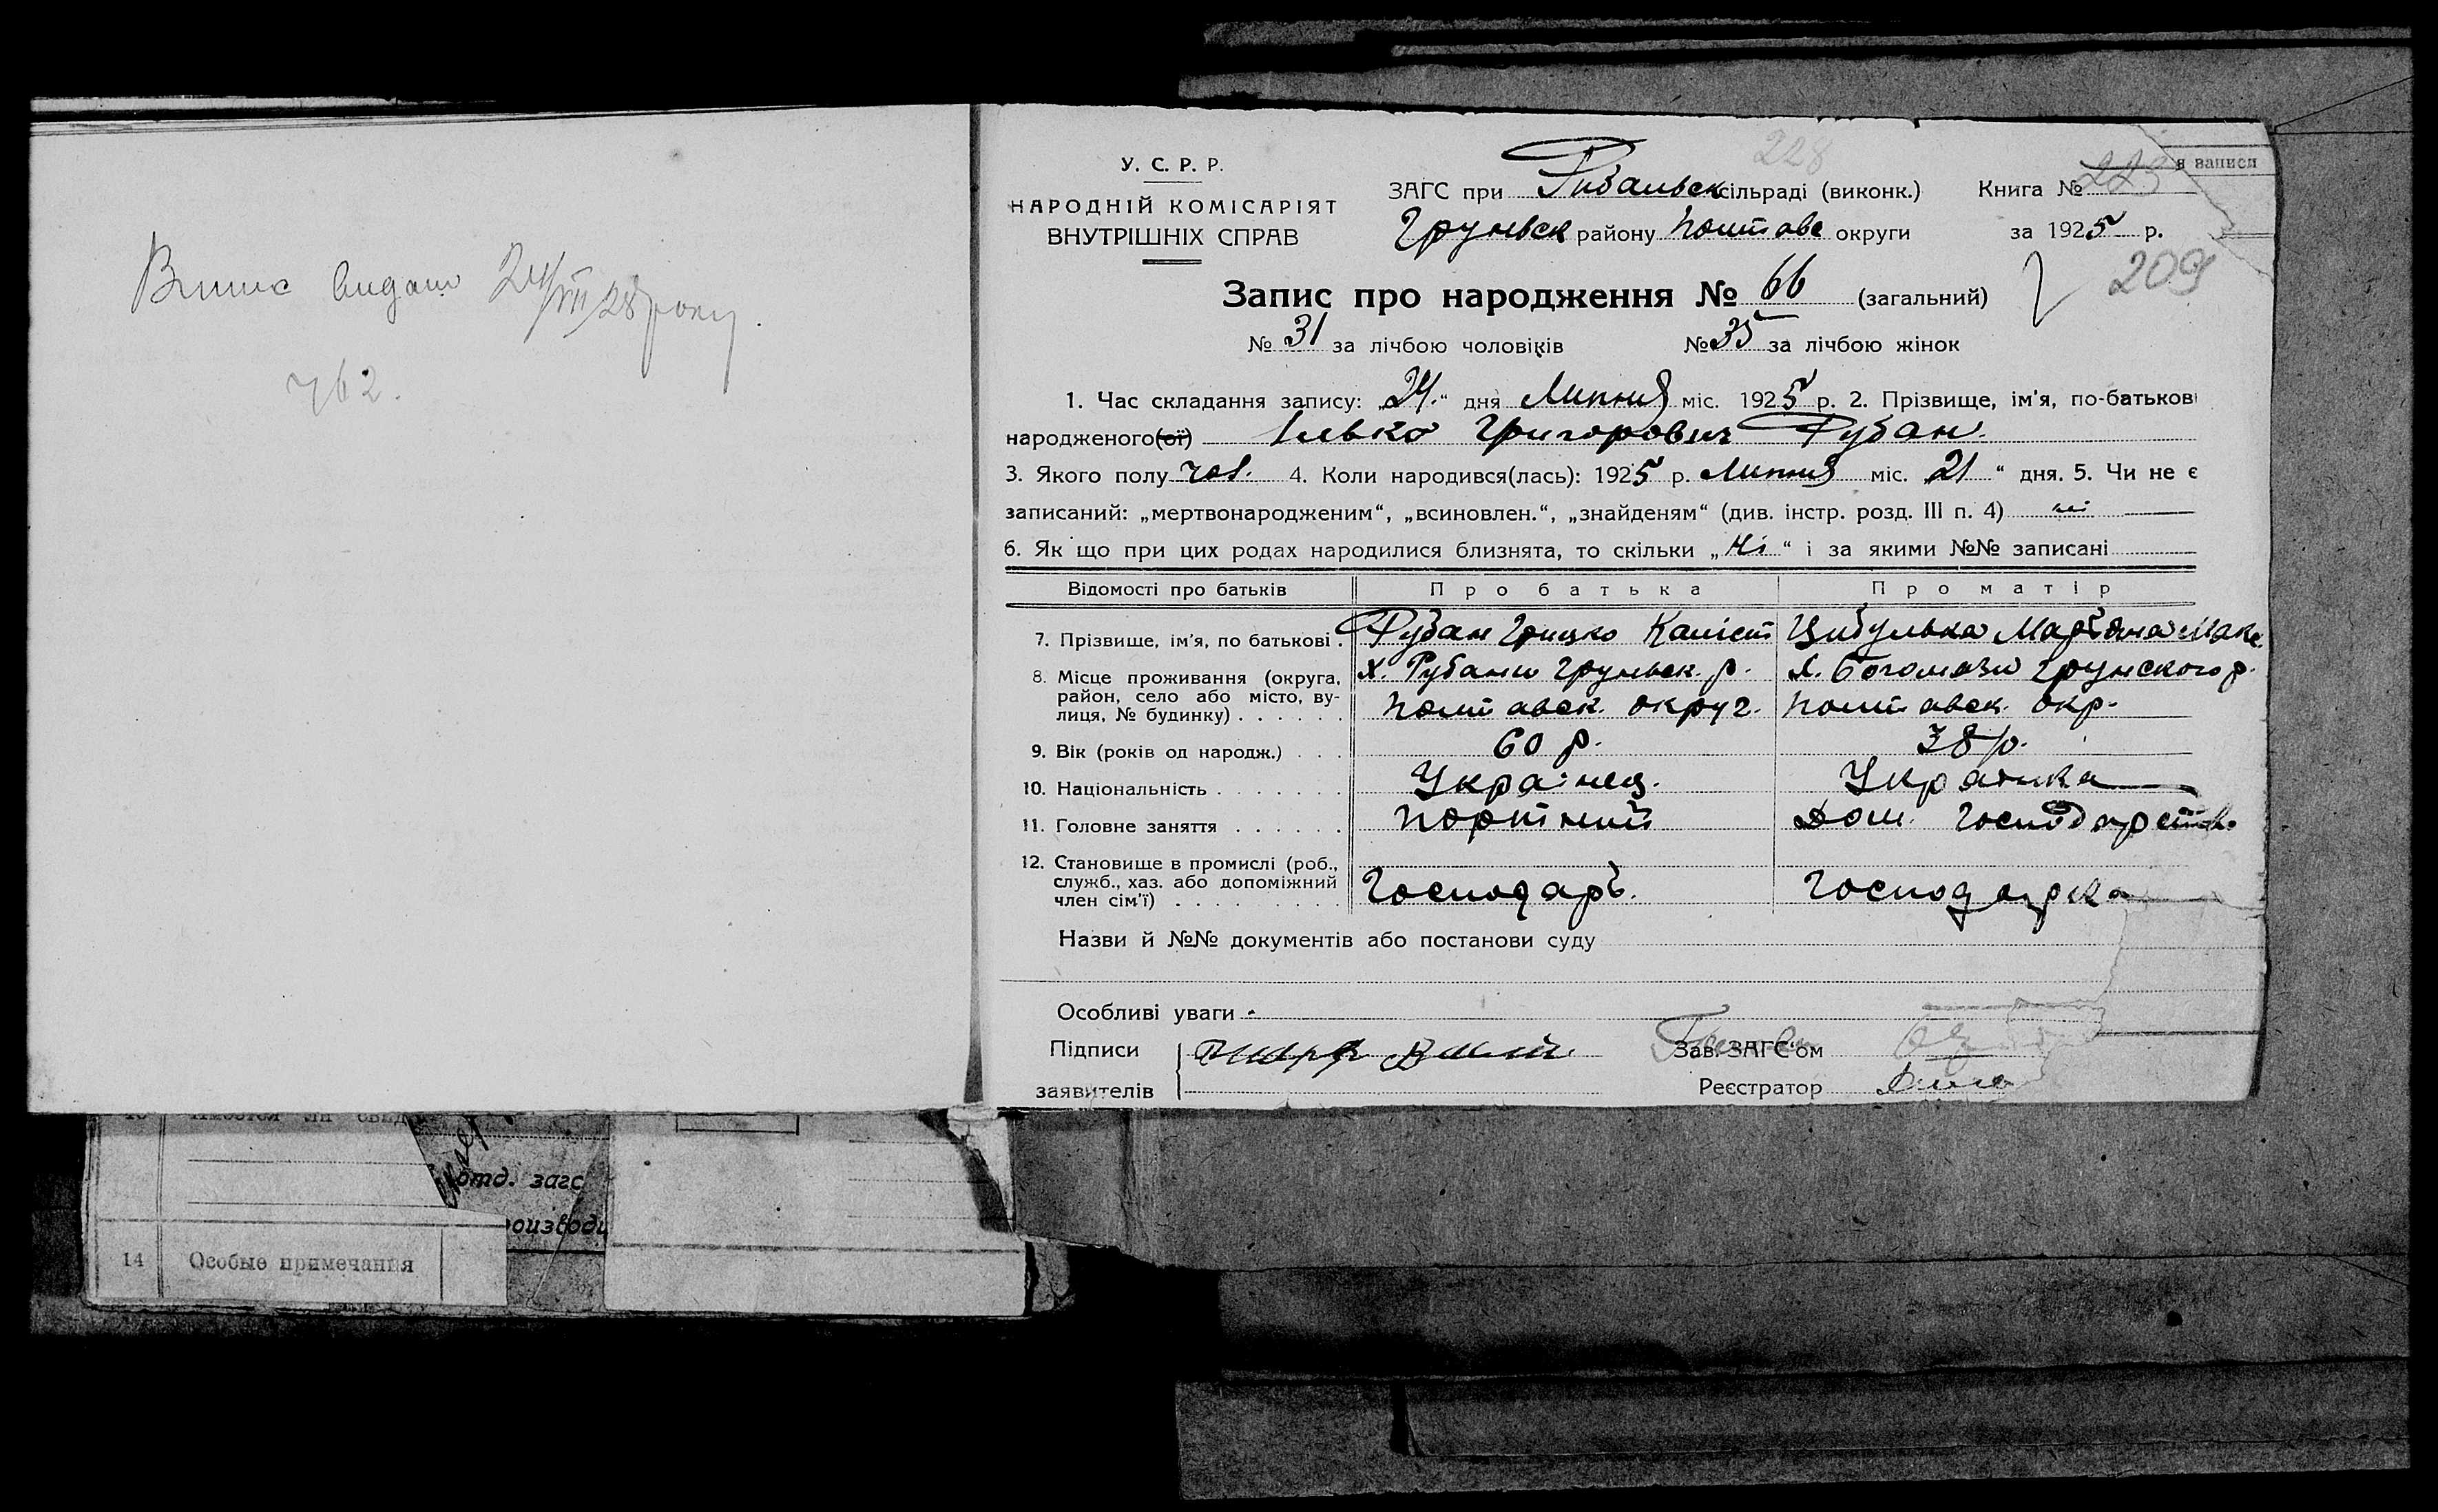 Випис видано 24/VII/28 року.
762.
У. С. Р. Р.
НАРОДНІЙ КОМІСАРІЯТ
ВНУТРІШНІХ СПРАВ
228
ЗАГС при Рибальськ сільраді (виконк.)
Груньск району Полтавс округи
Книга № 223
за 1925 р.
209
я записи
Запис про народження № 66 (загальний)
№ 31 за лічбою чоловіків № 35 за лічбою жінок
1. Час складання запису: „24.“ дня Липня міс. 1925 р. 2. Прізвище, ім'я, по-батькові
народженого(ої) Ілько Григорович Рубан.
3. Якого полу чол. 4. Коли народився(лась): 1925 р. Липня міс. „21“ дня. 5. Чи не є
записаний: „мертвонародженим“, „всиновлен.“, „знайденям“ (див. інстр. розд. III п. 4) ні
6. Як що при цих родах народилися близнята, то скільки „Ні“ і за якими №№ записані
Відомості про батьків Про батька Про матір
7. Прізвище, ім'я, по батькові . Рубан Грицко Каліст Цибулька Мар'яна Макс.
8. Місце проживання (округа, х. Рубани Груньск. р. х. Богомази Грунского р.
район, село або місто, ву-
лиця, № будинку) . . . . . . Полтавск. округ. Полтавск. окр.
9. Вік (років од народж.) . . . 60 р. 38 р.
10. Національність . . . . . . . Українец. Українка
11. Головне заняття . . . . . . Портний Дом. господарств.
12. Становище в промислі (роб.,
служб., хаз. або допоміжний
член сім'ї) . . . . . . . . . Господарь. господарка
Назви й №№ документів або постанови суду
Особливі уваги
Підписи
Зав. ЗАГС'ом
заявителів
Реєстратор
Имеется ли свид
отд. загс
роизводи
14 Особые примечания